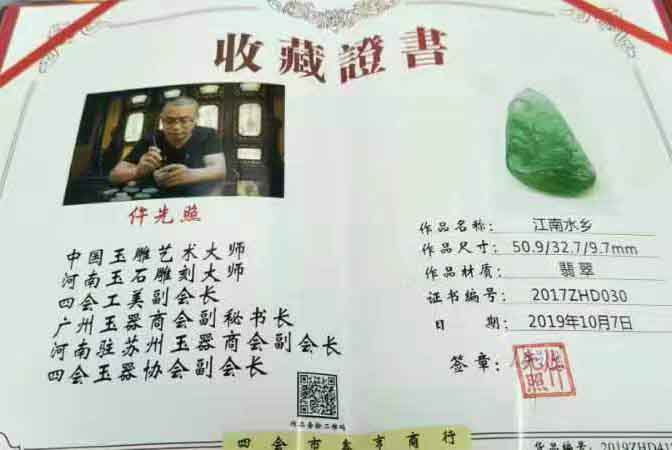 收藏證書
仵光照
中国玉雕艺术大师
河南玉石雕刻大师
四会工美副会长
广州玉器商会副秘书长
河南驻苏州玉器商会副会长
四会玉器协会副会长
作品名称： 江南水乡
作品尺寸：50.9/32.7/9.7mm
作品材质： 翡翠
证书编号：2017ZHD030
日 期：2019年10月7日
签章：